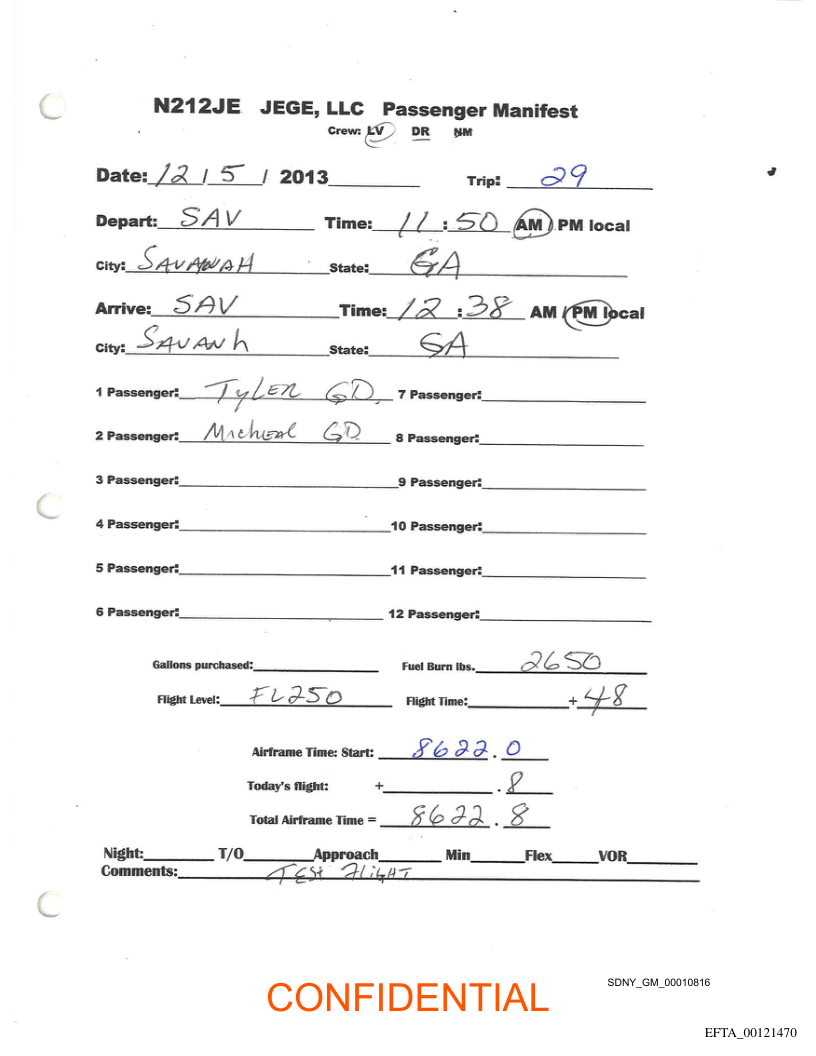 N212JE JEGE, LLC Passenger Manifest
Crew: LV DR NM
Date: 12 / 5 / 2013 Trip: 29
Depart: SAV Time: 11:50 AM / PM local
City: SAVANNAH State: GA
Arrive: SAV Time: 12:38 AM / PM local
City: SAVANh State: GA
1 Passenger: TyLER GD. 7 Passenger:
2 Passenger: MIcHEAL GD 8 Passenger:
3 Passenger: 9 Passenger:
4 Passenger: 10 Passenger:
5 Passenger: 11 Passenger:
6 Passenger: 12 Passenger:
Gallons purchased: Fuel Burn lbs. 2650
Flight Level: FL250 Flight Time: + 48
Airframe Time: Start: 8622.0
Today's flight: + .8
Total Airframe Time = 8622.8
Night: T/O Approach Min Flex VOR
Comments: TESt FLIGHT
SDNY_GM_00010816
CONFIDENTIAL
EFTA_00121470